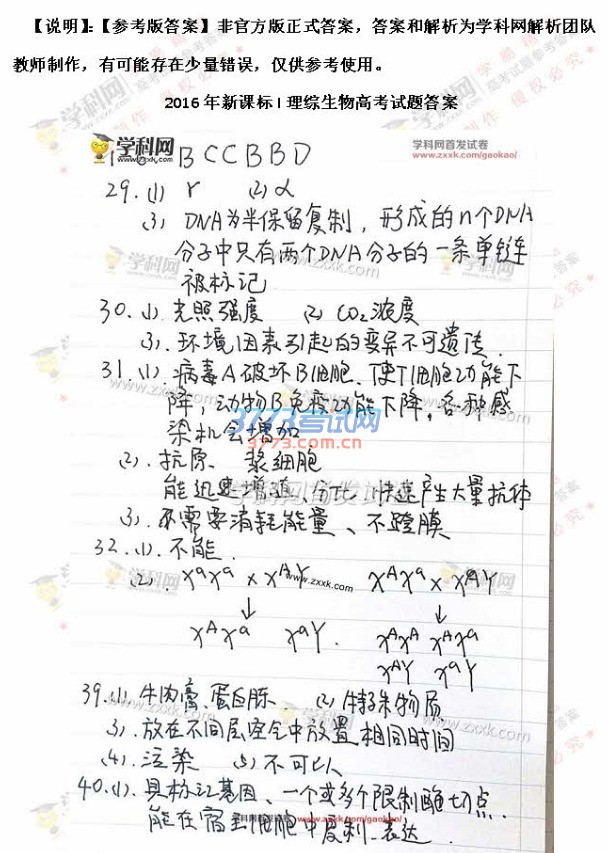 【说明】：【参考版答案】非官方版正式答案，答案和解析为学科网解析团队
教师制作，有可能存在少量错误，仅供参考使用。
2016年新课标I理综生物高考试题答案
学科网
www.zxxk.com
学科网首发试卷
www.zxxk.com/gaokao/
B C C B B D
29. (1) r (2) α
(3) DNA为半保留复制，形成的n个DNA
分子中只有两个DNA分子的一条单链
被标记
30. (1) 光照强度 (2) CO₂浓度
(3). 环境因素引起的变异不可遗传.
31. (1). 病毒A破坏B细胞、使T细胞功能下
降，动物B免疫功能下降，各种感
染机会增加
3773考试网
3773.com.cn
(2). 抗原 浆细胞
能迅速增殖、分化、快速产生大量抗体
学科网首发试卷
3). 不需要消耗能量、不跨膜
32. (1). 不能.
(2). XᵃXᵃ × XᴬY XᴬXᵃ × XᴬY
↓ ↓
XᴬXᵃ XᵃY. XᴬXᴬ XᴬXᵃ
XᴬY XᵃY
39. (1). 牛肉膏、蛋白胨 (2) 特殊物质
3). 放在不同层空气中放置相同时间
(4). 污染 (5) 不可以
40. (1). 具标记基因、一个或多个限制酶切点.
能在宿主细胞中复制、表达.